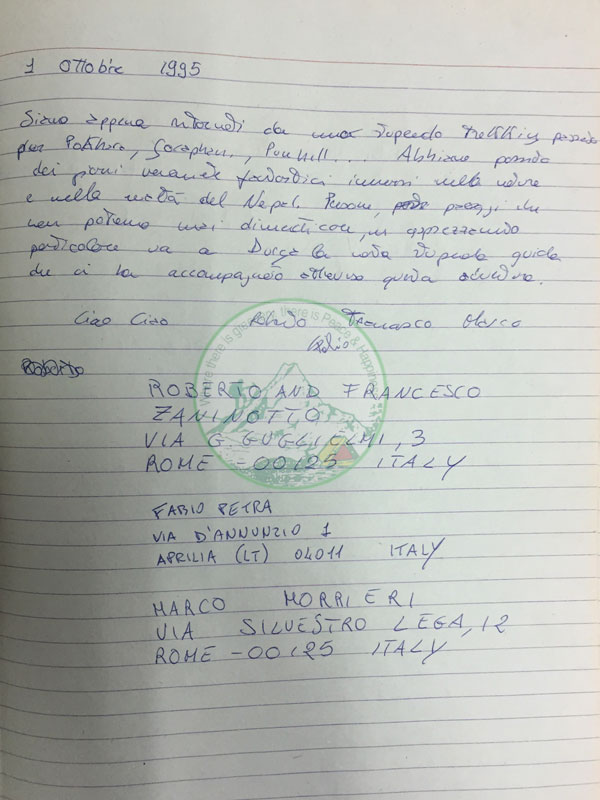 1 Ottobre 1995
Siamo appena ritornati da uno stupendo Trekking passando
per Pokhara, Punhill... Abbiamo passato
dei giorni veramente fantastici immersi nella natura
e nella realtà del Nepal. Persone, paesaggi che
non potremo mai dimenticare, un apprezzamento
particolare va a la nostra stupenda guida
che ci ha accompagnato questa avventura.
Ciao Ciao Roberto Francesco Marco
Fabio
Roberto
ROBERTO AND FRANCESCO
ZANINOTTO
VIA G GUGLIELMI, 3
ROME - 00125 ITALY
FABIO PETRA
VIA D'ANNUNZIO 1
APRILIA (LT) 04011 ITALY
MARCO MORRIERI
VIA SILVESTRO LEGA, 12
ROME - 00125 ITALY
where there is green there is Peace & Happiness